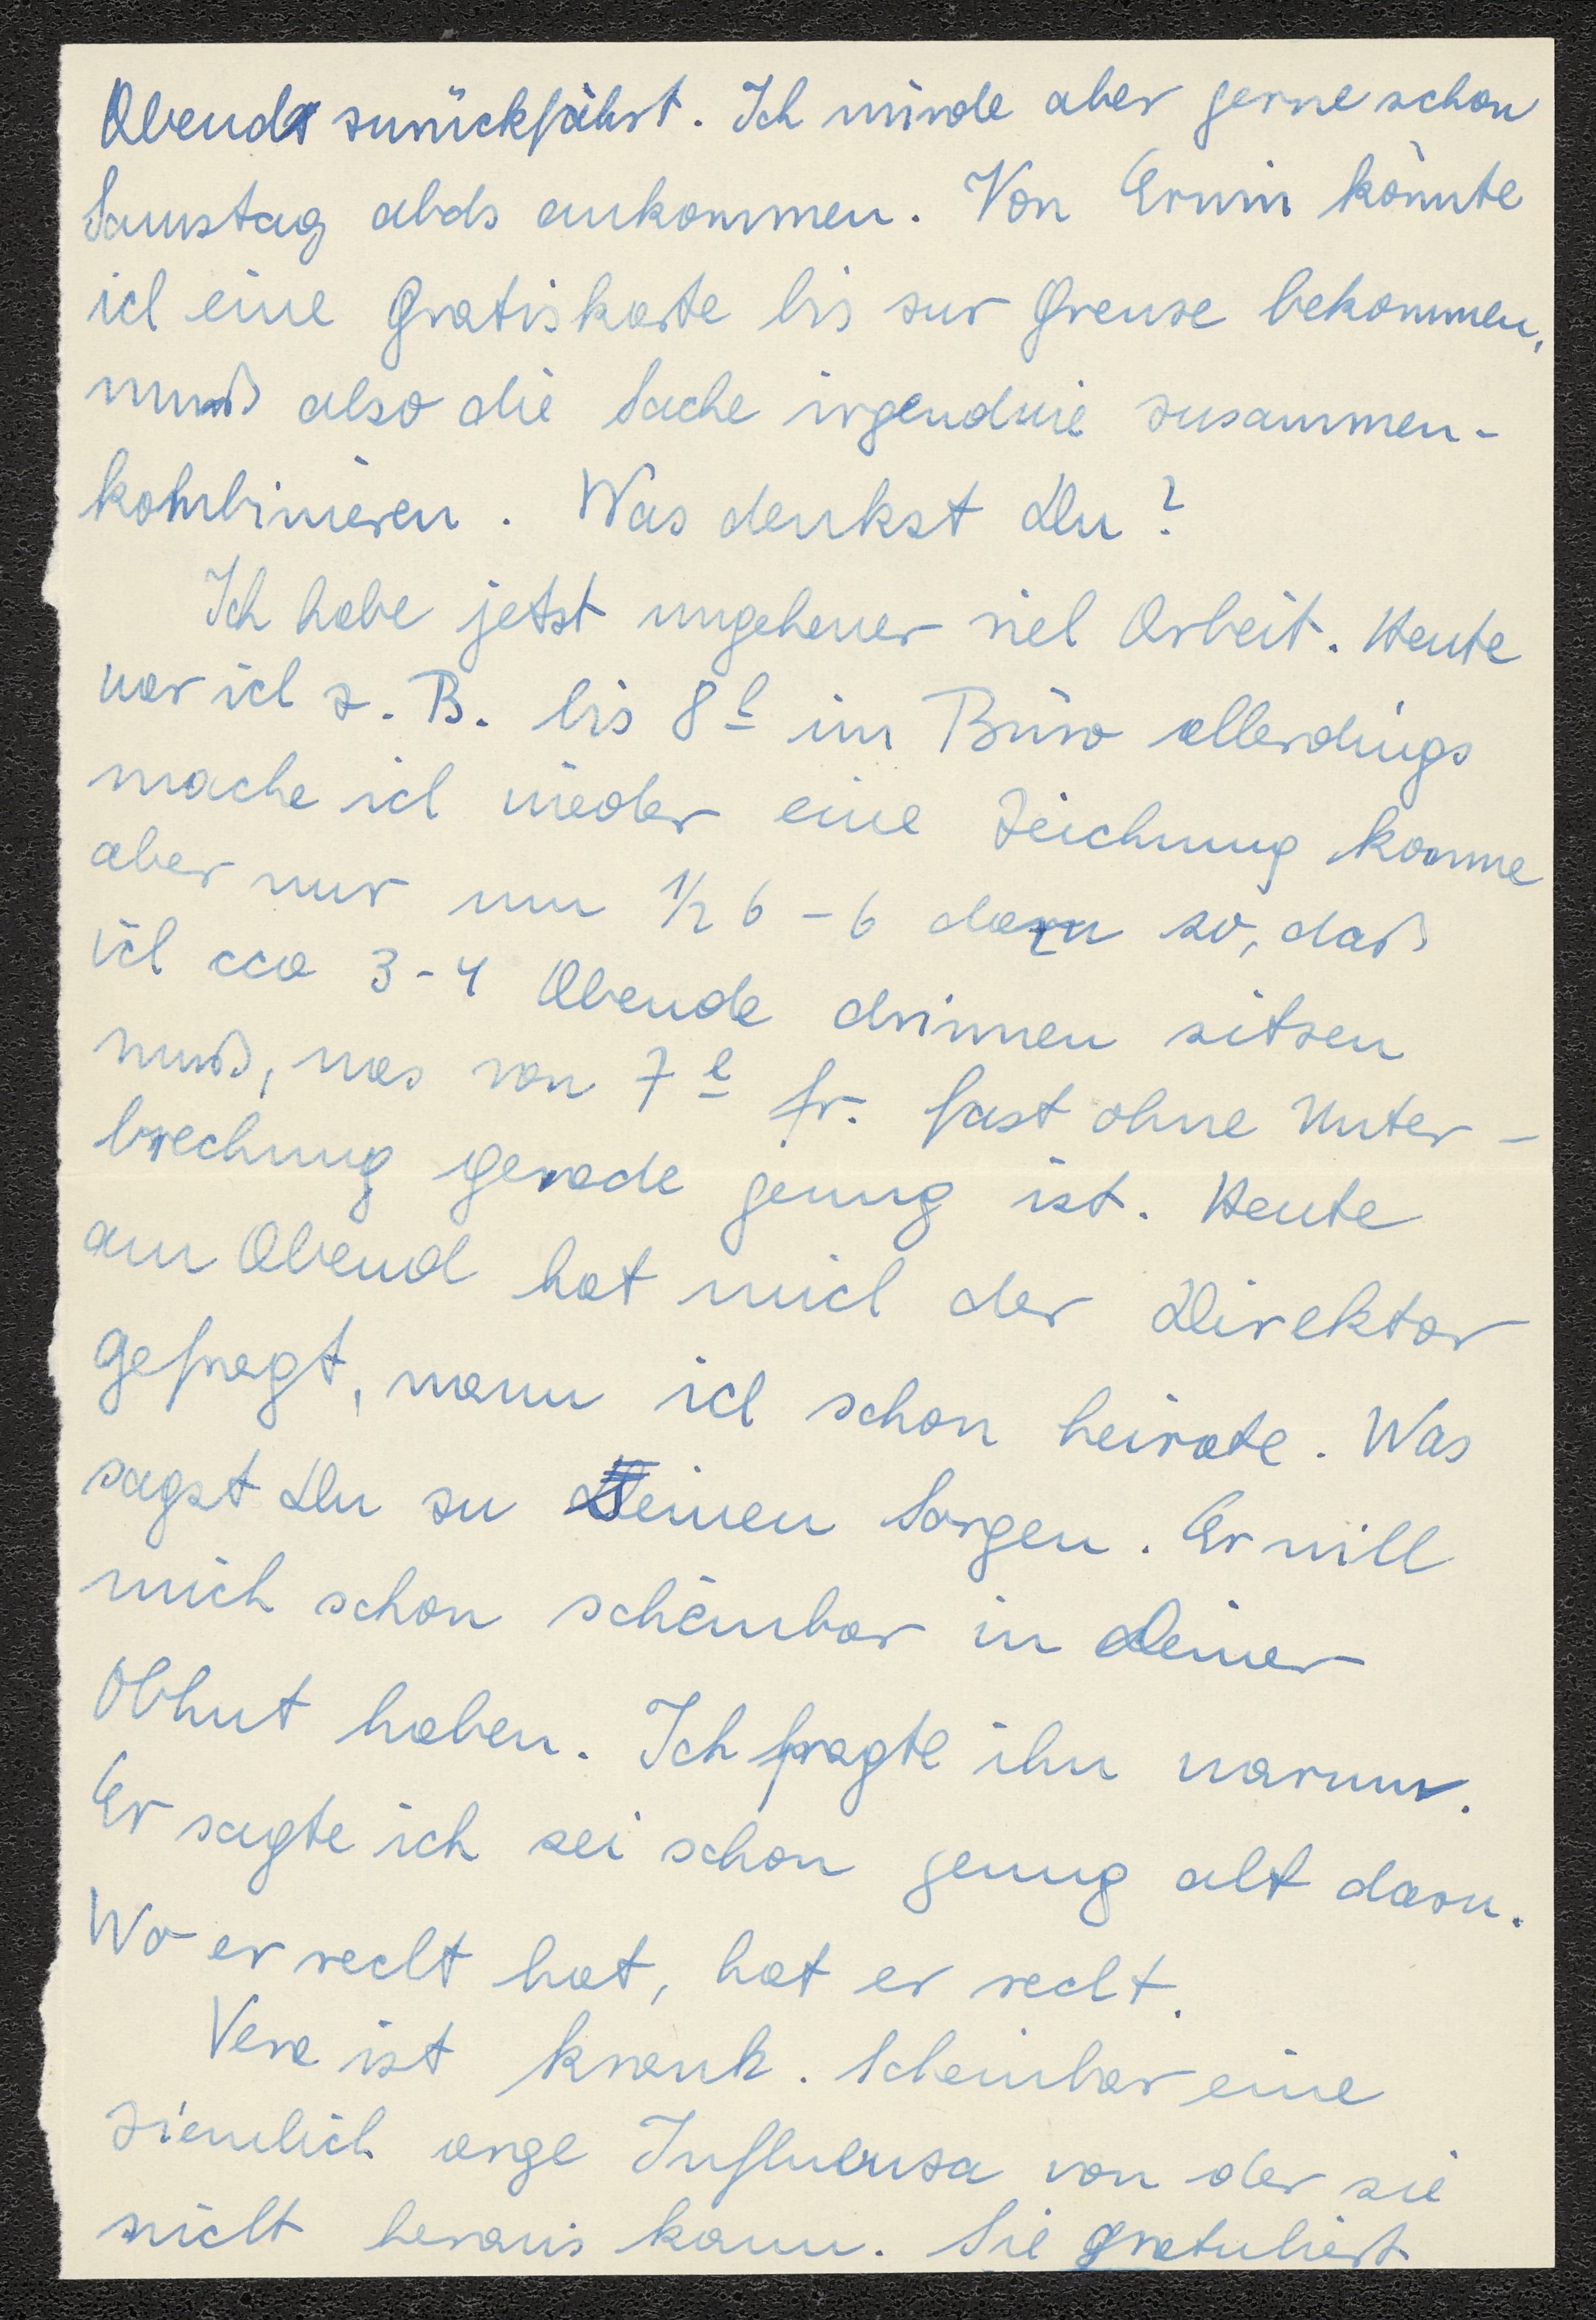 Abends zurückfährt. Ich würde aber gerne schon
Samstag abds ankommen. Von Erwin könnte
ich eine Gratiskarte bis zur Grenze bekommen,
muß also die Sache irgendwie zusammen-
kombinieren. Was denkst Du?
Ich habe jetzt ungeheuer viel Arbeit. Heute
war ich z. B. bis 8h im Büro allerdings
mache ich wieder eine Zeichnung komme
aber nur um 1/2 6 - 6 dazu so, daß
ich cca 3-4 Abende drinnen sitzen
muß, was von 7h fr. fast ohne Unter-
brechung gerade genug ist. Heute
am Abend hat mich der Direktor
gefragt, wann ich schon heirate. Was
sagst Du zu seinen Sorgen. Er will
mich schon scheinbar in Deiner
Obhut haben. Ich fragte ihn warum.
Er sagte ich sei schon genug alt dazu.
Wo er recht hat, hat er recht.
Vera ist krank. Scheinbar eine
ziemlich arge Influenza von der sie
nicht heraus kann. Sie gratuliert